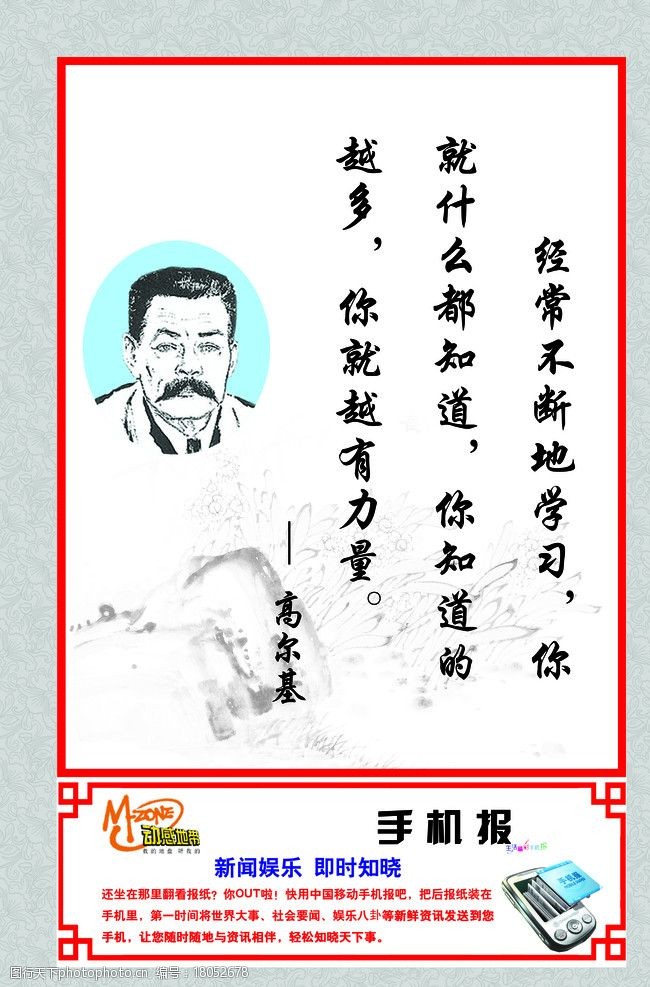 经常不断地学习，你
就什么都知道，你知道的
越多，你就越有力量。
——高尔基
M-ZONE
动感地带
我的地盘 听我的
手机报
新闻娱乐 即时知晓
还坐在那里翻看报纸？你OUT啦！快用中国移动手机报吧，把后报纸装在
手机里，第一时间将世界大事、社会要闻、娱乐八卦等新鲜资讯发送到您
手机，让您随时随地与资讯相伴，轻松知晓天下事。
手机报
图行天下photophoto.cn 编号：18052678